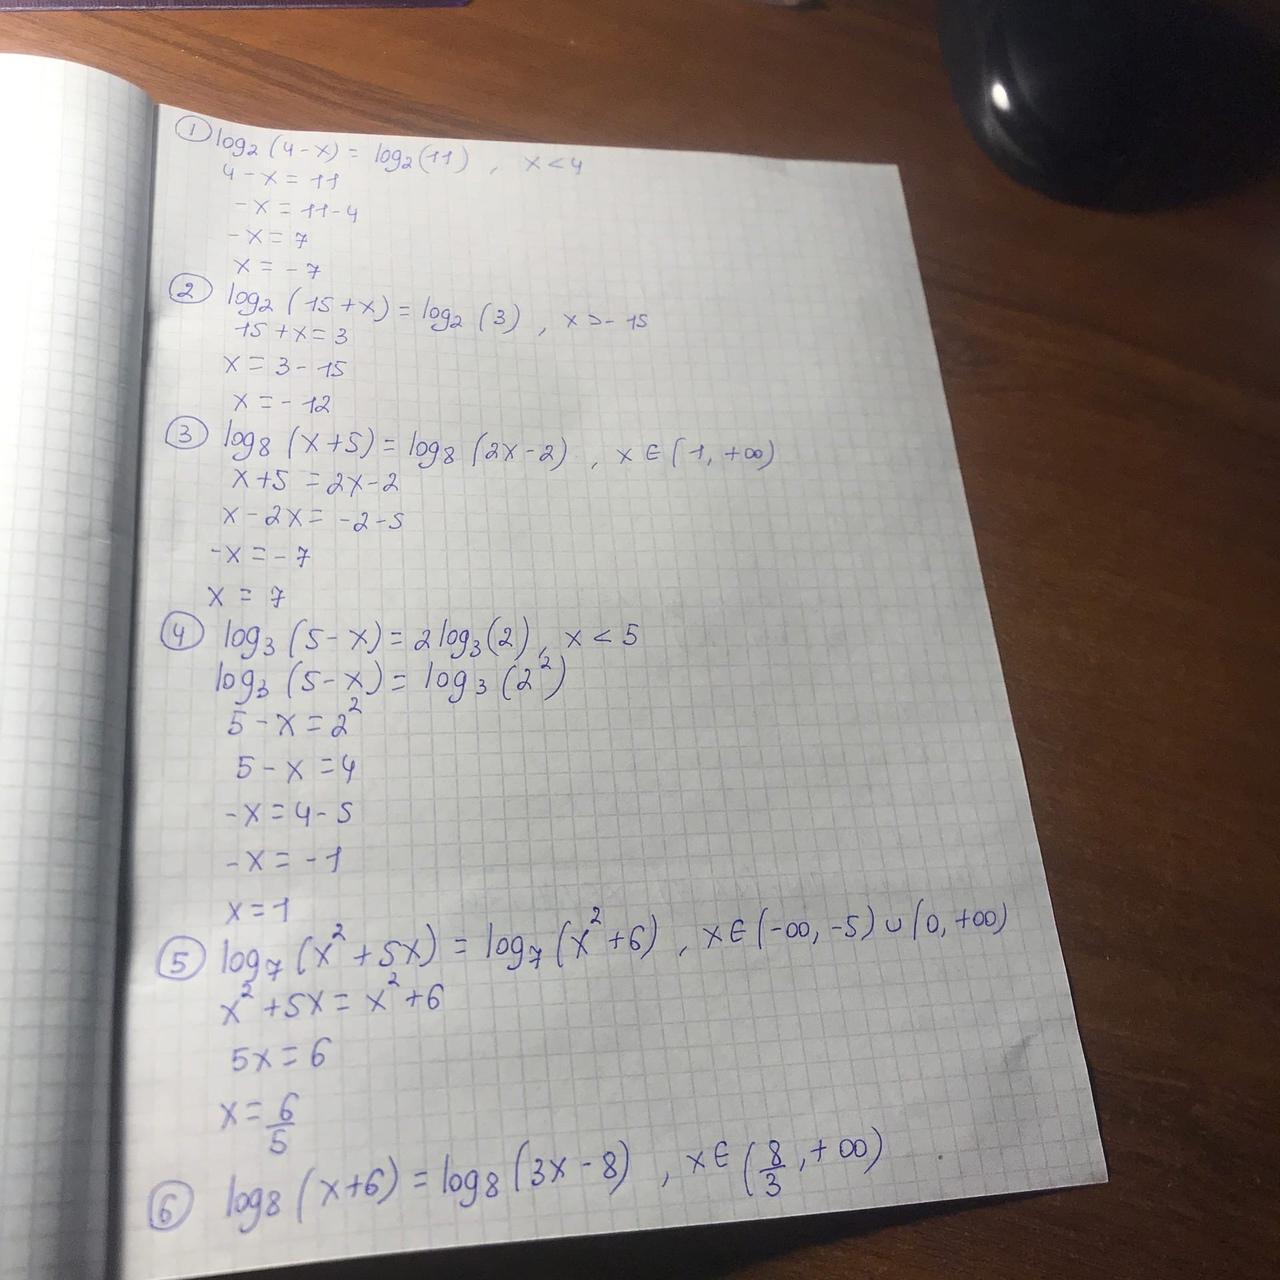 ① log₂(4-x) = log₂(11), x<4
4-x=11
-x=11-4
-x=7
x=-7
② log₂(15+x)=log₂(3), x>-15
15+x=3
x=3-15
x=-12
③ log₈(x+5)=log₈(2x-2), x∈(1,+∞)
x+5=2x-2
x-2x=-2-5
-x=-7
x=7
④ log₃(5-x)=2log₃(2), x<5
log₃(5-x)=log₃(2²)
5-x=2²
5-x=4
-x=4-5
-x=-1
x=1
⑤ log₇(x²+5x)=log₇(x²+6), x∈(-∞,-5)∪(0,+∞)
x²+5x=x²+6
5x=6
x=6/5
⑥ log₈(x+6)=log₈(3x-8), x∈(8/3,+∞)